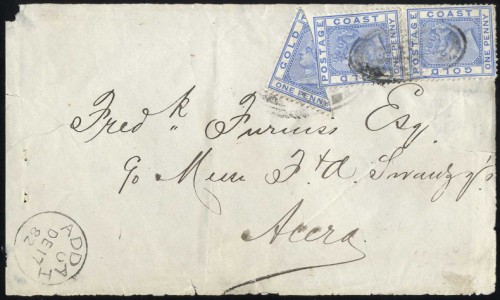 GOLD
ONE PENNY
POSTAGE
COAST
ONE PENNY
GOLD
POSTAGE
COAST
ONE PENNY
GOLD
Fredk. Furniss Esq
c/o Mess F & A Swanzy's
Accra
ADDA
C
DE 17
82